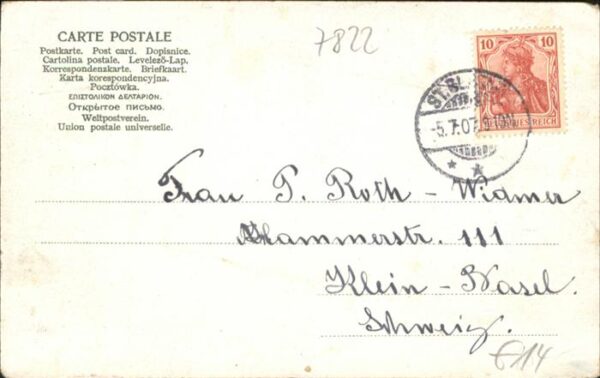 CARTE POSTALE
Postkarte. Post card. Dopisnice.
Cartolina postale. Levelező-Lap.
Korrespondenzkarte. Briefkaart.
Karta korespondencyjna.
Pocztówka.
ΕΠΙΣΤΟΛΙΚΟΝ ΔΕΛΤΑΡΙΟΝ.
Открытое письмо.
Weltpostverein.
Union postale universelle.
7822
10 10
DEUTSCHES REICH
-5.7.07
Frau P. Roth - Widmer
Hammerstr. 111
Klein - Basel.
Schweiz.
€14